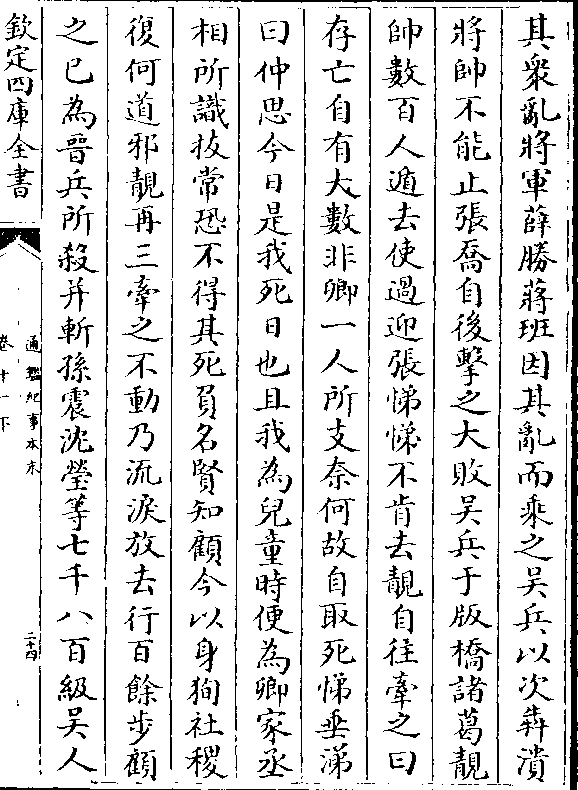 其衆亂將軍薛勝蔣班因其亂而乘之吴兵以次犇潰
將帥不能止張喬自後擊之大敗吴兵于版橋諸葛靚
帥數百人遁去使過迎張悌悌不肯去靚自往牽之曰
存亡自有大數非卿一人所支奈何故自取死悌垂涕
曰仲思今日是我死日也且我為兒童時便為卿家丞
相所識拔常恐不得其死負名賢知顧今以身狥社稷
復何道邪靚再三牽之不動乃流淚放去行百餘步顧
之已為晉兵所殺并斬孫震沈瑩等七千八百級吴人
欽定四庫全書
通鑑紀事本末
卷十一下
二十四